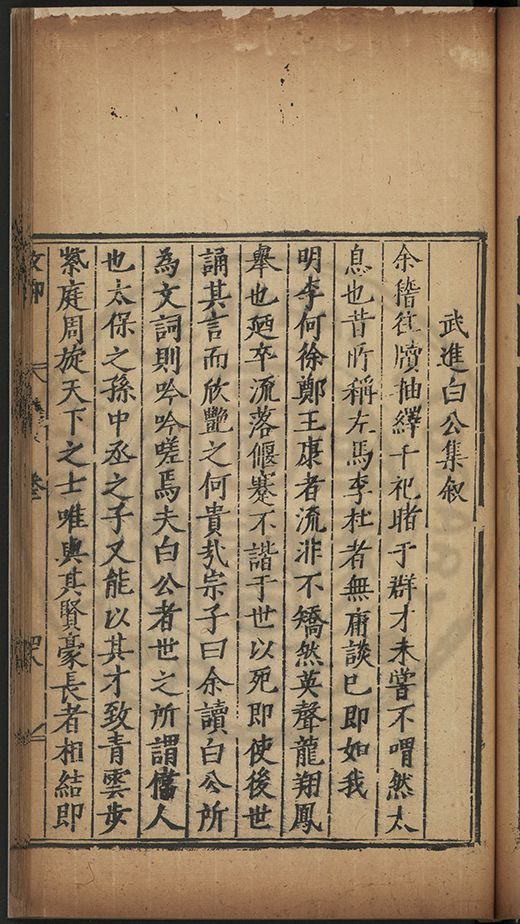 武進白公集叙
余稽往牘抽繹千祀睹于群才未嘗不喟然太
息也昔所稱左馬李杜者無庸談已即如我
明李何徐鄭王康者流非不矯然英聲龍翔鳳
舉也廼卒流落偃蹇不諧于世以死即使後世
誦其言而欣艷之何貴㢤宗子曰余讀白公所
為文詞則吟吟嗟焉夫白公者世之所謂儁人
也太保之孫中丞之子又能以其才致青雲步
紫庭周旋天下之士唯與其賢豪長者相結即